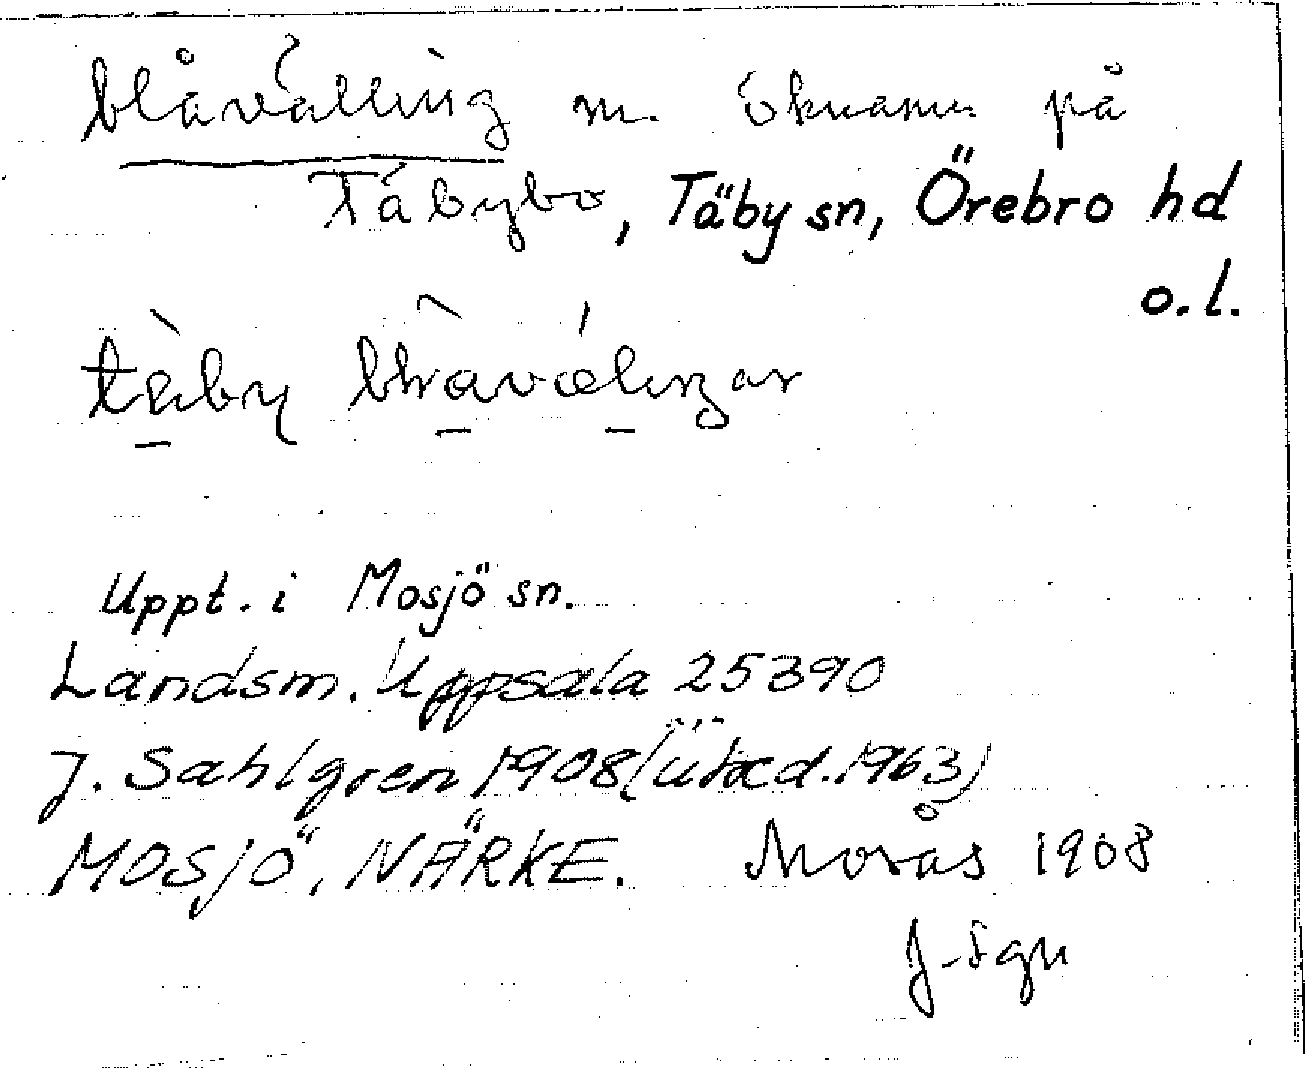 blåvälling m. öknamn på
Täbybo, Täby sn, Örebro hd
o.l.
tàby
Uppt. i Mosjö sn.
Landsm. Uppsala 25390
J. Sahlgren 1908 (utxd. 1963)
MOSJÖ, NÄRKE. Morås 1908
J. Sgn